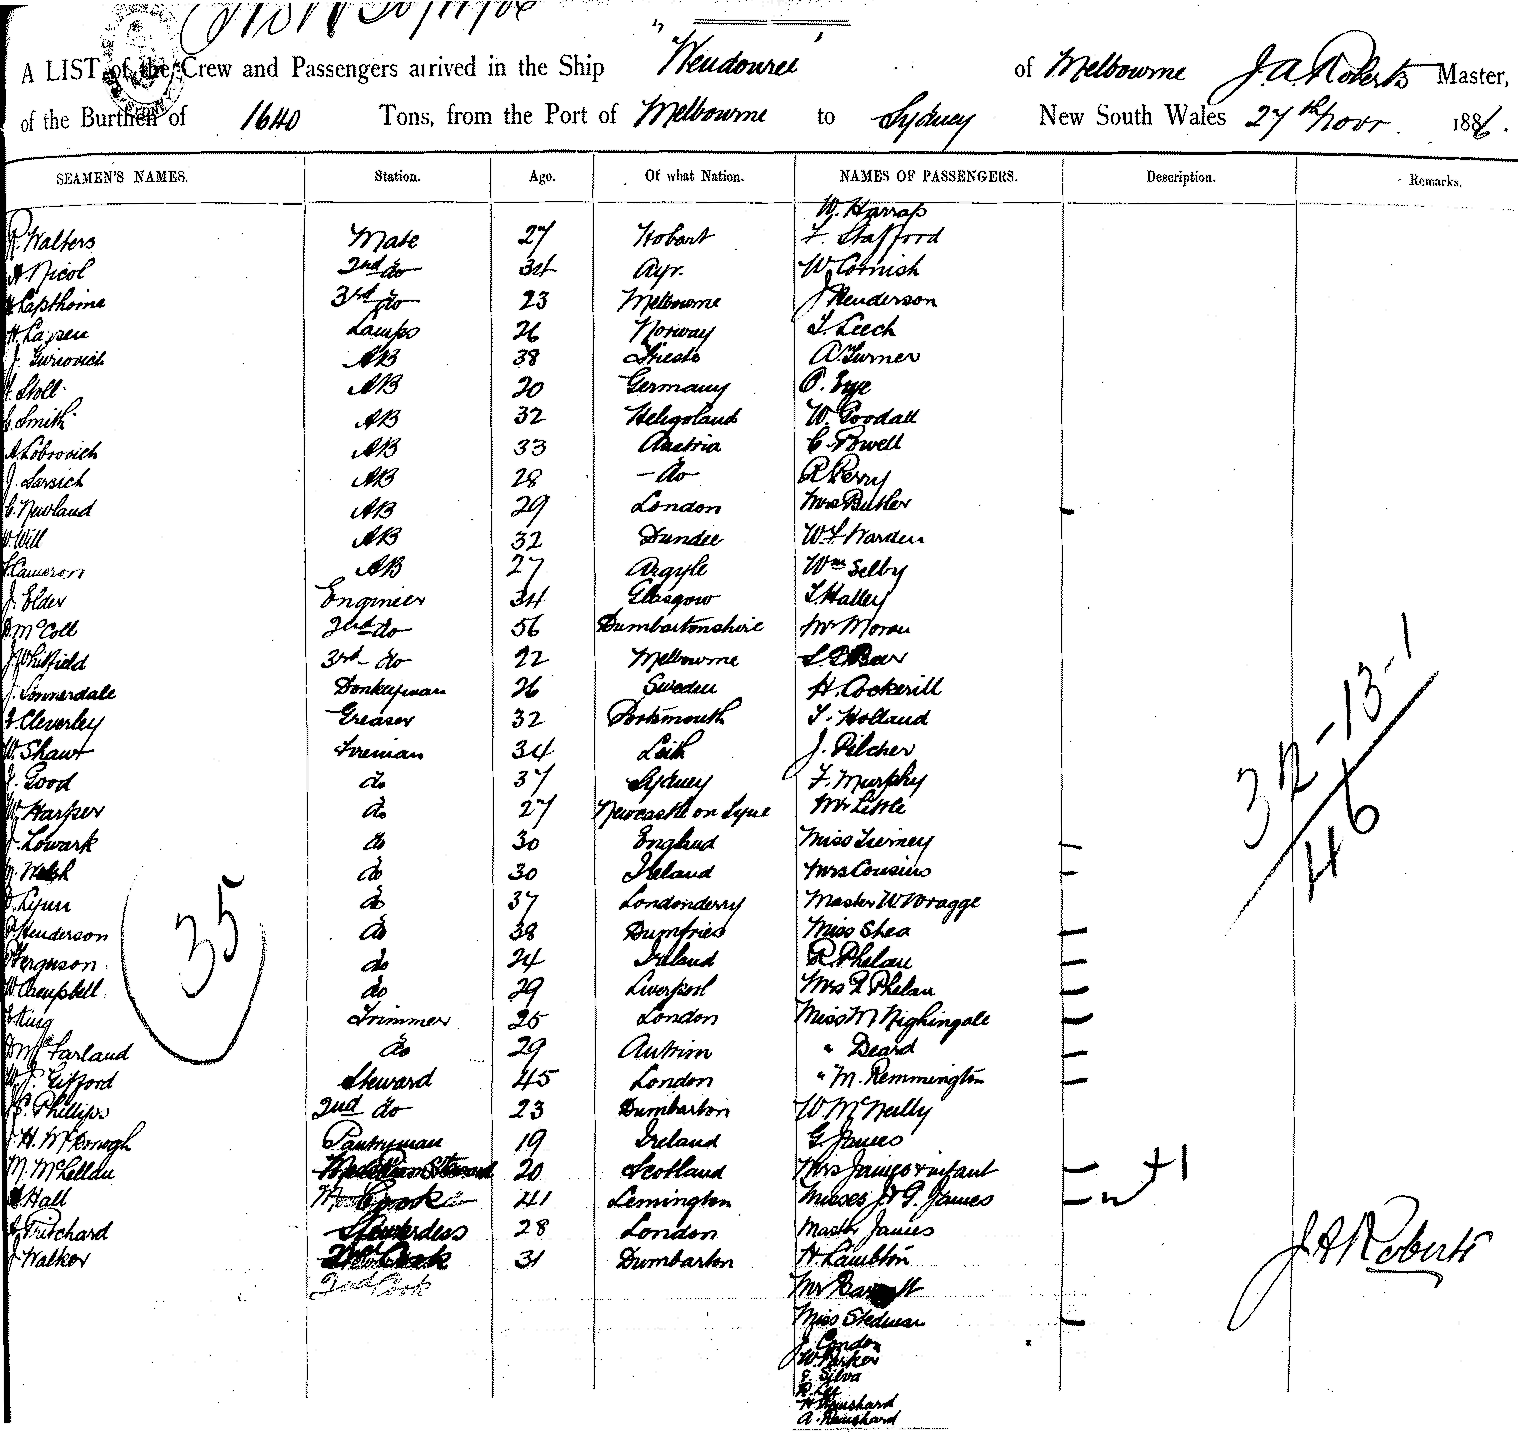 "Wendouree"
A LIST of the Crew and Passengers arrived in the Ship "Wendouree" of Melbourne J. A. Roberts Master,
of the Burthen of 1640 Tons, from the Port of Melbourne to Sydney New South Wales 27th Novr 1886.
SEAMEN'S NAMES. Station. Age. Of what Nation. NAMES OF PASSENGERS. Description. Remarks.
W. Harrap
R. Walters Mate 27 Hobart F. Stafford
A Nicol 2nd do 34 Ayr. W Cornish
Capthorne 3rd do 23 Melbourne J Henderson
H. Lapsen Lamps 26 Norway T. Leech
J. Gurovich AB 38 Trieste A. Turner
Stoll AB 20 Germany P. Eye
Smith AB 32 Heligoland W. Goodall
A Lobrovich AB 33 Austria C. Powell
J. Sarsich AB 28 - do R Perry
C. Newland AB 29 London Mrs Butler
W Will AB 32 Dundee W L Warden
Cameron AB 27 Argyle Wm Selby
J. Elder Engineer 34 Glasgow T Halley
McColl 2nd do 56 Dumbartonshire Mr Moran
J Whitfield 3rd do 22 Melbourne Beer
J. Sonnerdale Donkeyman 26 Sweden H. Cockerill
Cleverley Greaser 32 Portsmouth T. Holland
W. Shaw Fireman 34 Leith J. Pilcher
Good do 37 Sydney F. Murphy
W. Harper do 27 Newcastle on Tyne Mr Little
Lowark do 30 England Miss Tierney
Welsh do 30 Ireland Mrs Cousins
Lynn do 37 Londonderry Master W Wragge
Henderson do 38 Dumfries Miss Shea
Ferguson do 24 Ireland R. Phelan
W Campbell do 29 Liverpool Mrs R Phelan
King Trimmer 25 London Miss M Nighingale
McFarland do 29 Antrim " Deard
W. J. Gifford Steward 45 London " M. Remmington
Phillips 2nd do 23 Dumbarton W. McNeilly
H. McKonogh Pantryman 19 Ireland G. James
M. McLellan 20 Scotland Mrs James & infant +1
Hall Cook 41 Lemington Misses J & G. James
Pritchard Stewardess 28 London Master James
J Walker 2nd Cook 31 Dumbarton H. Lambton
2nd Cook
Miss Stedman
J. Condon
W. Parker
E. Silva
R. Lee
H Rainshard
A. Rainshard
35
32-13-1
46
J A Roberts